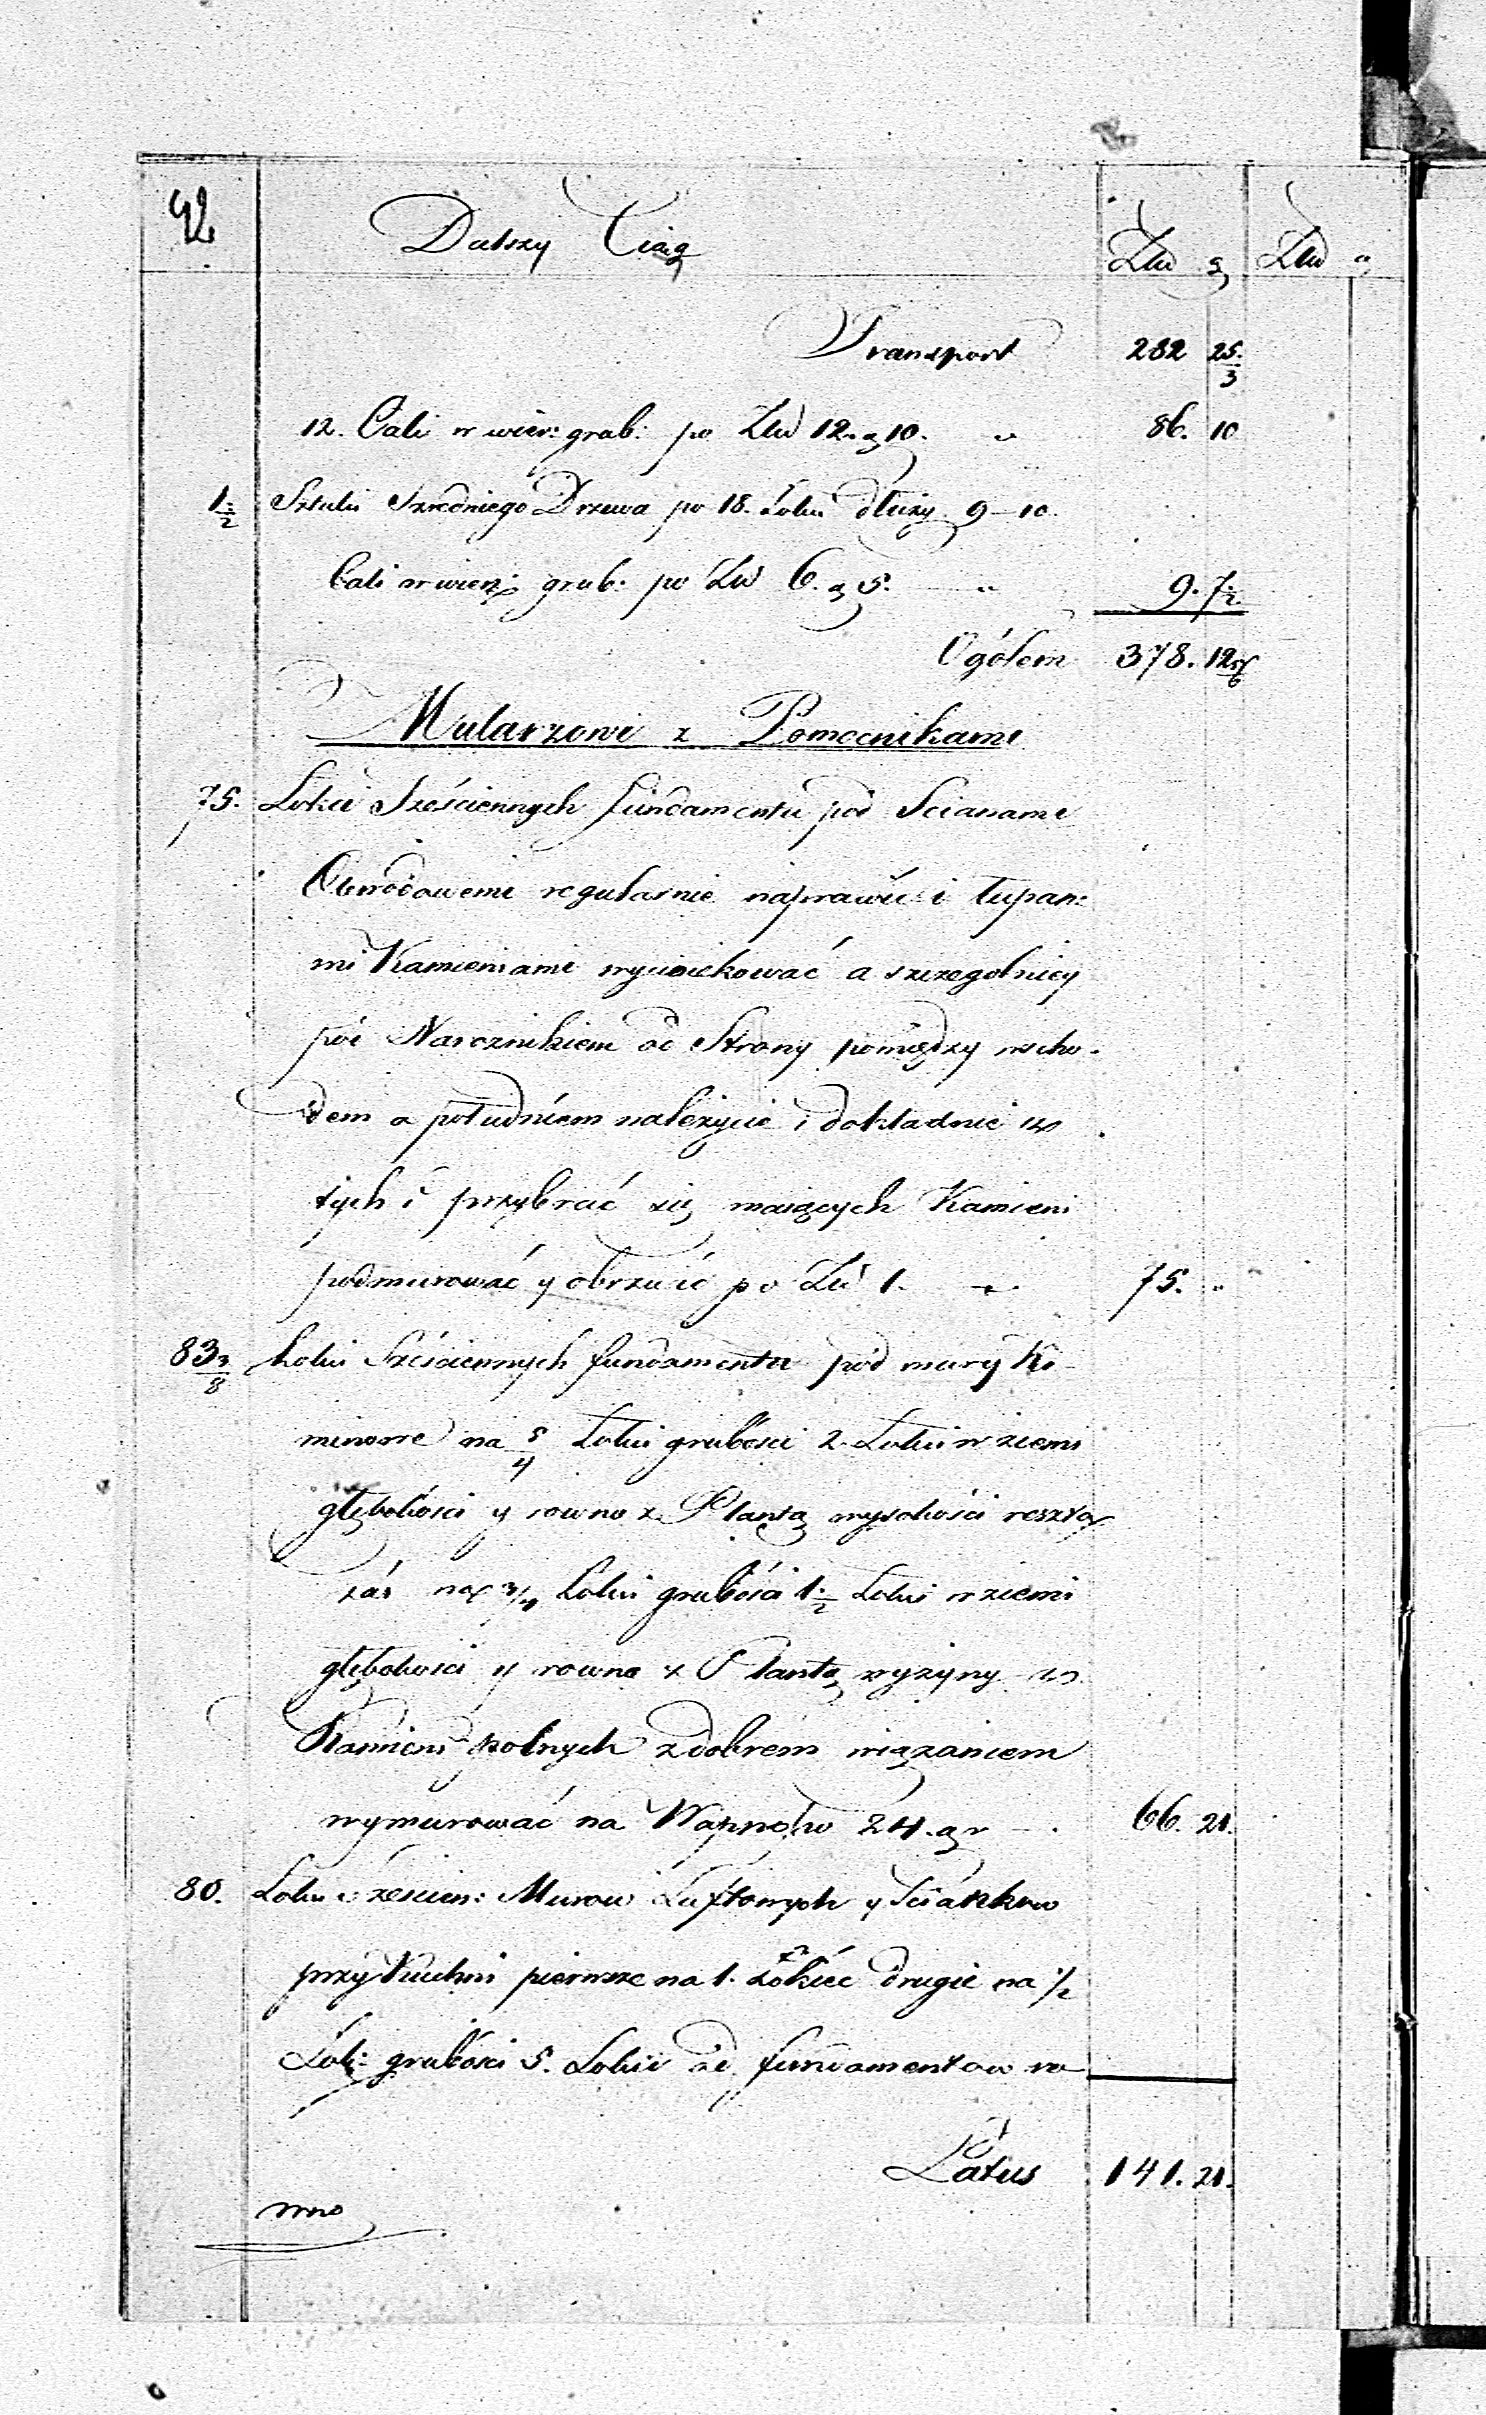 92 Dalszy Ciąg Złł g Złł "
Transport 282 25. 1/3
12. Cali w wier: grub: po Złł 12. g 10. " 86. 10
1 1/2 Sztuki Szredniego Drzewa po 18. Łokci dłuży 9–10.
Cali w wierz: grub: po Złł 6. g 5. " 9. 7 1/2
Ogółem 378. 12 5/6
Mularzowi z Pomocnikami
75. Łokci Sześciennych fundamentu pod Scianami
Obwodowemi regularnie naprawić i łupan:
mi Kamieniami wyćwiekować a szczegolniey
pod Narożnikiem od Strony pomiędzy wscho-
dem a południem należycie i dokładnie z
tych i przybrać się maiących Kamieni
podmurować y obrzucić po Złł 1. " 75. "
83 3/8 Łokci Sześciennych fundamentu pod mury Ko-
minowe na 5/4 Łokci grubości 2. Łokci w ziemi
głębokości y rowno z Plantą wysokości resztę
zaś na 3/4 Łokci grubości 1 1/2 Łokci w ziemi
głębokości y rowno z Plantą wyżyny z
Kamieni polnych z dobrem wiązaniem
wymurować na Wapno po 24. gr – 66. 21.
80. Łokci Sześcien: Murow Luftowych y Scianków
przy Kuchni pierwsze na 1. Łokieć drugie na 1/2
Łok: grubości 5. Łokci od fundamentow wy
Latus 141. 21.